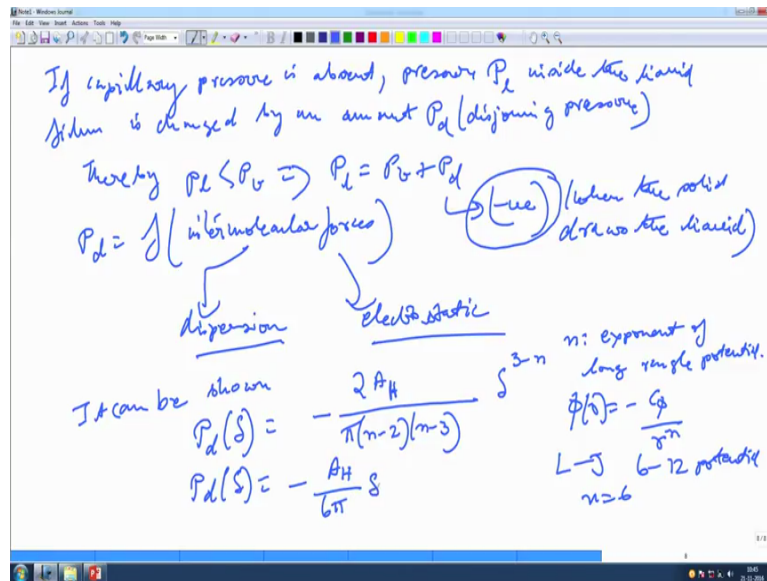 Note1 - Windows Journal
File Edit View Insert Actions Tools Help
Page Width
If capillary pressure is absent, pressure P_l inside the liquid
film is changed by an amount P_d (disjoining pressure)
Thereby P_l < P_v ⇒ P_l = P_v + P_d
(-ve) (when the solid
draws the liquid)
P_d = f (intermolecular forces)
dispersion electrostatic
n: exponent of
long range potential.
It can be shown
P_d(δ) = - 2 A_H / π(n-2)(n-3) δ^{3-n}
φ(r) = - C_φ / r^n
L-J 6-12 potential
n=6
P_d(δ) = - A_H / 6π δ
8/8
8
16:45
21-11-2016